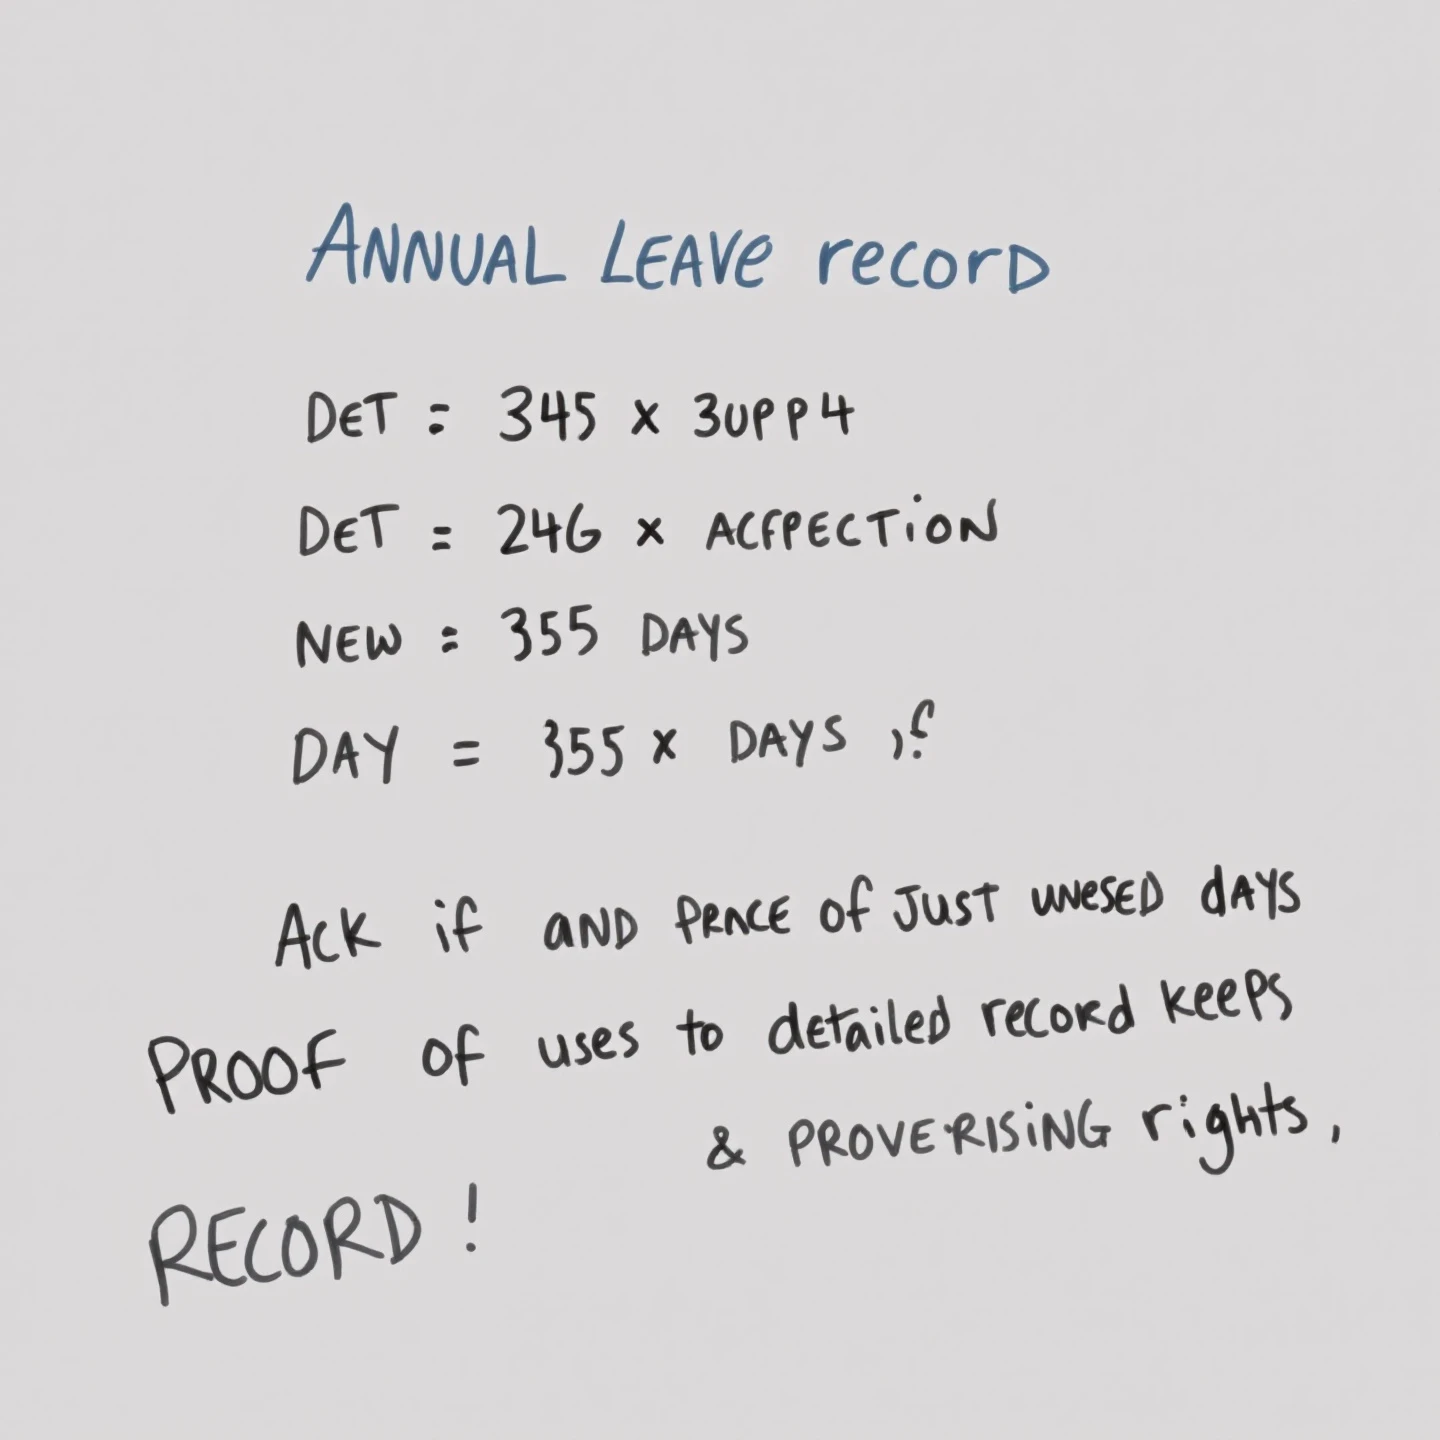 ANNUAL LEAVe recorD
DET = 345 x 3UPP4
DET = 24G x ACFPECTiON
NEW = 355 DAYS
DAY = 355 x DAYS
Ack if AND PRNCE of JUST UNESED dAYS
PROOF of uses to detailed record keeps
& PROVERISiNG rights,
RECORD!